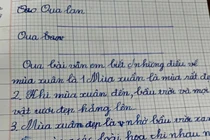 Qua lan
Qua
Qua bài văn em biết những điều về
mùa xuân là 1. Mùa xuân là mùa rất đẹp
2. Khi mùa xuân đến, bầu trời và mọi
vật tươi đẹp hẳng lên.
3. Mùa xuân đẹp là nhờ bầu trời
loài hoa nhau